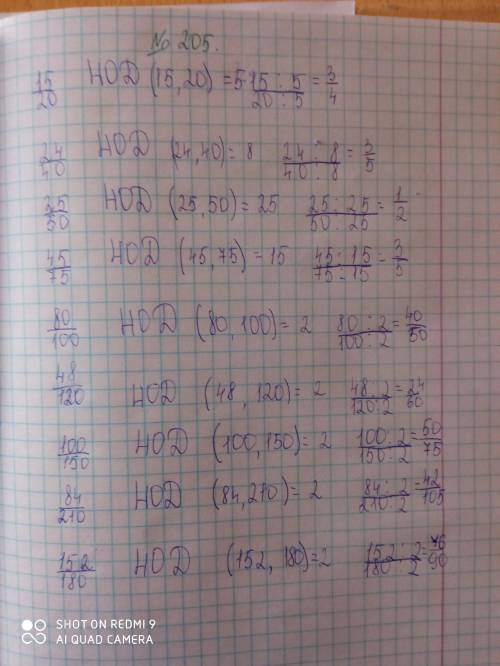 № 205.
15/20 НОД (15,20) = 5 15 : 5 / 20 : 5 = 3/4
24/40 НОД (24,40) = 8 24 : 8 / 40 : 8 = 3/5
25/50 НОД (25,50) = 25 25 : 25 / 50 : 25 = 1/2
45/75 НОД (45,75) = 15 45 : 15 / 75 : 15 = 3/5
80/100 НОД (80,100) = 2 80 : 2 / 100 : 2 = 40/50
48/120 НОД (48, 120) = 2 48 : 2 / 120 : 2 = 24/60
100/150 НОД (100,150) = 2 100 : 2 / 150 : 2 = 50/75
84/210 НОД (84,210) = 2 84 : 2 / 210 : 2 = 42/105
152/180 НОД (152, 180) = 2 152 : 2 / 180 : 2 = 76/90
SHOT ON REDMI 9
AI QUAD CAMERA